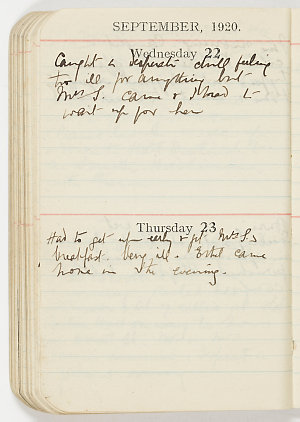 SEPTEMBER, 1920.
Wednesday 22
Caught a desperate chill feeling
too ill for anything but
Mrs S. came & I had to
wait up for her
Thursday 23
Had to get up early & get Mrs S.s
breakfast. Very ill. Ethel came
home in the evening.